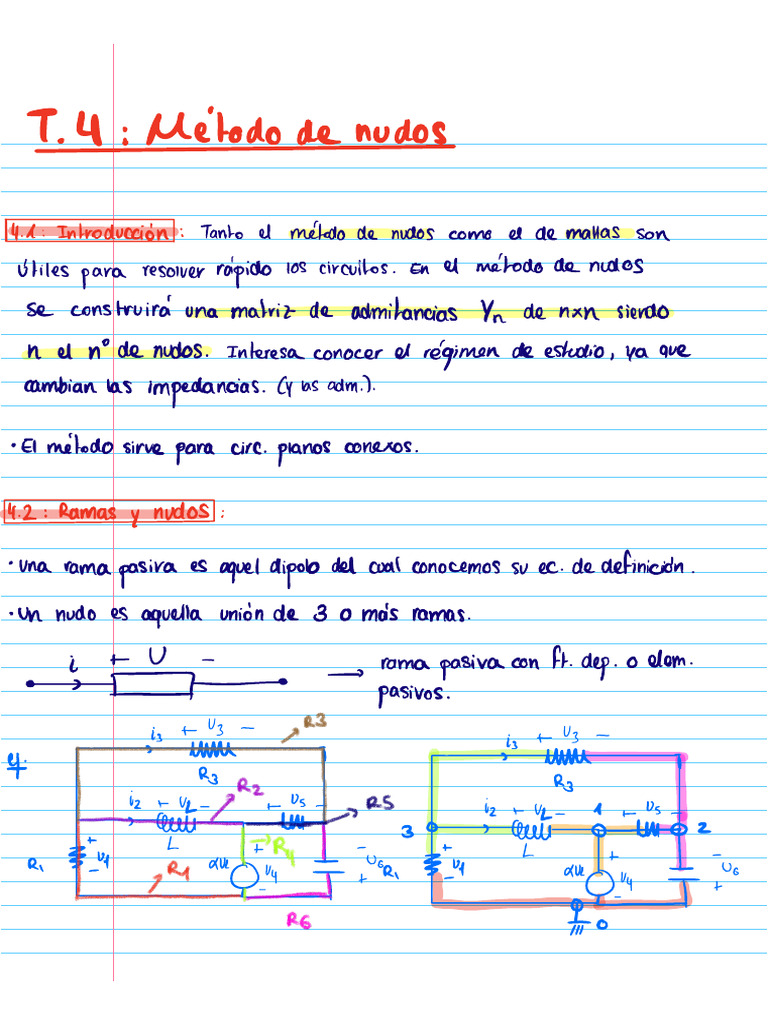 T.4: Método de nudos
4.1: Introducción: Tanto el método de nudos como el de mallas son
útiles para resolver rápido los circuitos. En el método de nudos
se construirá una matriz de admitancias Yn de n×n siendo
n el nº de nudos. Interesa conocer el régimen de estudio, ya que
cambian las impedancias. (y las adm.).
• El método sirve para circ. planos conexos.
4.2: Ramas y nudos:
• Una rama pasiva es aquel dipolo del cual conocemos su ec. de definición.
• Un nudo es aquella unión de 3 o más ramas.
i + U - → rama pasiva con ft. dep. o elem.
pasivos.
ej.
i3 + U3 - R3
R3
i2 + UL - R2 U5 - R5
L
R1 + U1 - R1 αUL + U4 - R4 - U6 +
R6
i3 + U3 -
R3
3 i2 + UL - 1 + U5 - 2
L
R1 + U1 - αUL + U4 - - U6 +
0